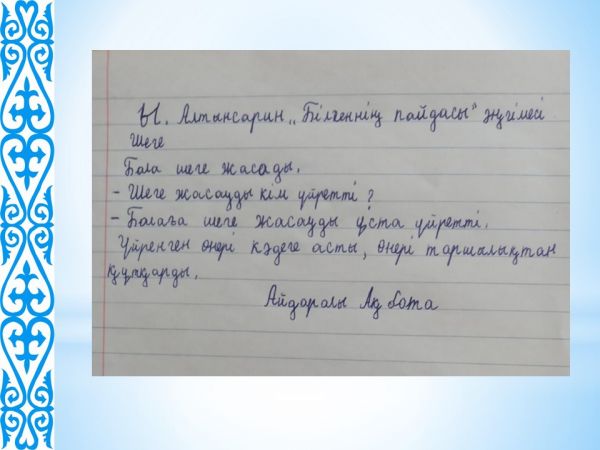 Ы. Алтынсарин „Білгеннің пайдасы" әңгімесі
Шеге
Бала шеге жасады.
- Шеге жасауды кім үйретті?
- Балаға шеге жасауды ұста үйретті.
Үйренген өнері кәдеге асты, өнері таршылықтан
құтқарды.
Айдаралы Ақбота